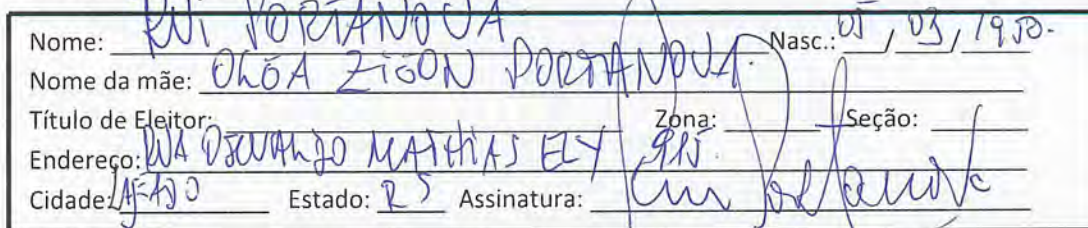 Nome: RUI PORTANOVA Nasc.: 05/03/1950.
Nome da mãe: OLGA ZIGON PORTANOVA.
Título de Eleitor: Zona: Seção:
Endereço: RUA OSWALDO MATHIAS ELY 915.
Cidade: LAJEADO Estado: RS Assinatura: Rui Portanova